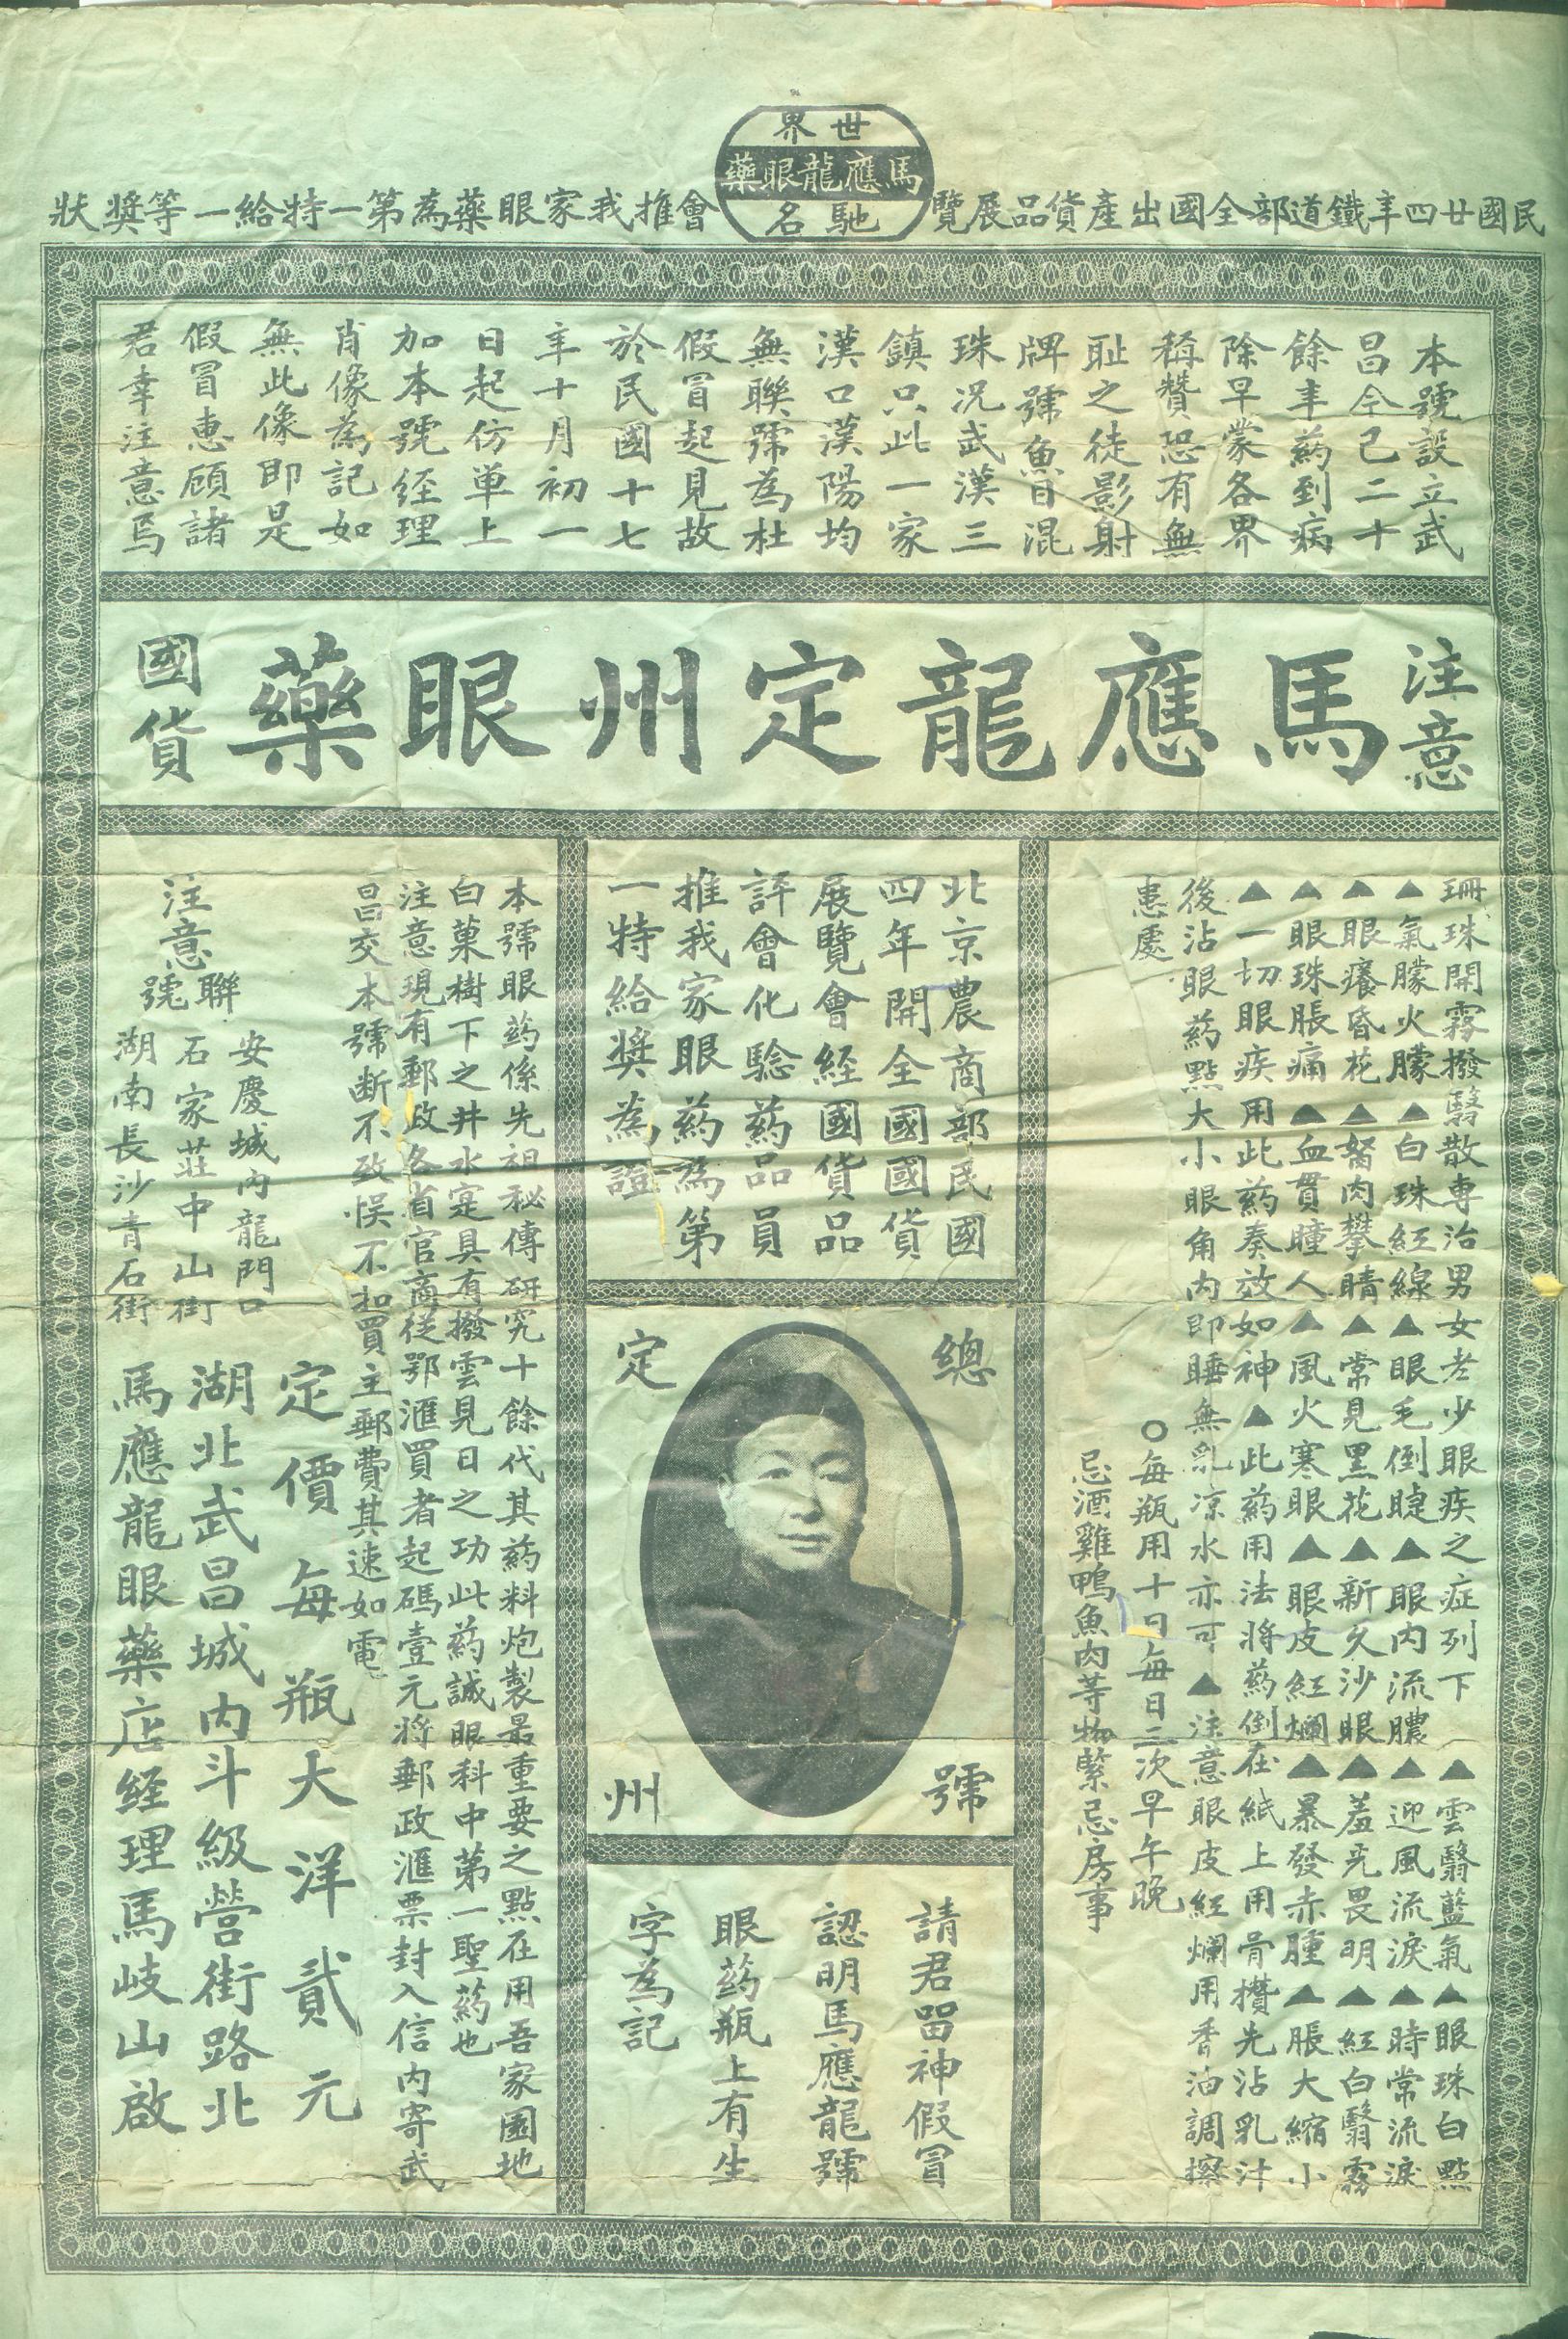 世界
馬應龍眼藥
馳名
民國廿四年鐵道部全國出產貨品展覽
會推我家眼藥為第一特給一等獎狀
本號設立武
昌今已二十
餘年药到病
除早蒙各界
稱贊恐有無
耻之徒影射
牌號魚目混
珠況武漢三
鎮只此一家
漢口漢陽均
無聯號為杜
假冒起見故
於民國十七
年十月初一
日起仿单上
加本號経理
肖像為記如
無此像即是
假冒惠顧諸
君幸注意焉
注意
馬應龍定州眼藥
國貨
珊珠開霧撥翳散專治男女老少眼疾之症列下▲雲翳藍氣▲眼珠白點
▲氣朦火朦▲白珠紅線▲眼毛倒睫▲眼内流膿▲迎風流淚▲時常流淚
▲眼癢昏花▲胬肉攀睛▲常見黑花▲新久沙眼▲羞光畏明▲紅白翳霧
▲眼珠脹痛▲血貫瞳人▲風火寒眼▲眼皮紅爛▲暴發赤腫▲脹大縮小
▲一切眼疾用此药奏效如神▲此药用法將药倒在紙上用骨攢先沾乳汁
後沾眼药點大小眼角内即睡無乳凉水亦可▲注意眼皮紅爛用香油調擦
患處
○每瓶用十日每日三次早午晚
忌酒雞鴨魚肉等物緊忌房事
北京農商部民國
四年開全國國貨
展覽會経國貨品
評會化驗药品員
推我家眼药為第
一特給獎為證
總號
定州
請君留神假冒
認明馬應龍號
眼药瓶上有生
字為記
本號眼药係先祖秘傳研究十餘代其药料炮製最重要之點在用吾家園地
白菓樹下之井水寔具有撥雲見日之功此药誠眼科中第一聖药也
注意現有郵政各省官商從鄂滙買者起碼壹元將郵政滙票封入信内寄武
昌交本號断不致悞不扣買主郵費其速如電
注意
聯號
安慶城内龍門口
石家莊中山街
湖南長沙青石街
定價每瓶大洋貳元
湖北武昌城内斗級營街路北
馬應龍眼藥店経理馬岐山啟